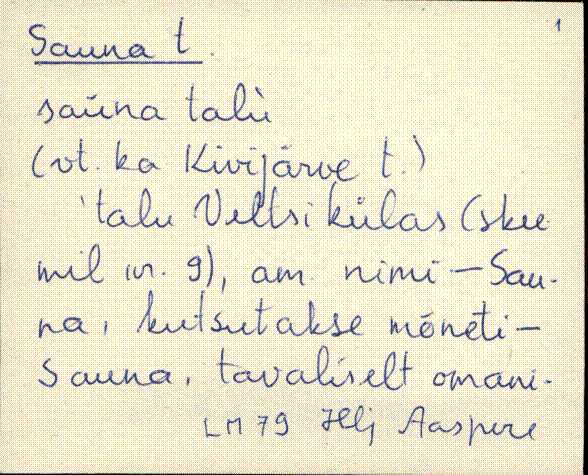 1
Sauna t.
saūna talù
(vt. ka Kivijärve t.)
'talu Veltsi külas (skee-
mil nr. 9), am. nimi – Sau-
na, kutsutakse mõnéti –
Sauna, tavaliselt omani-
LM 79 Hlj Aaspere